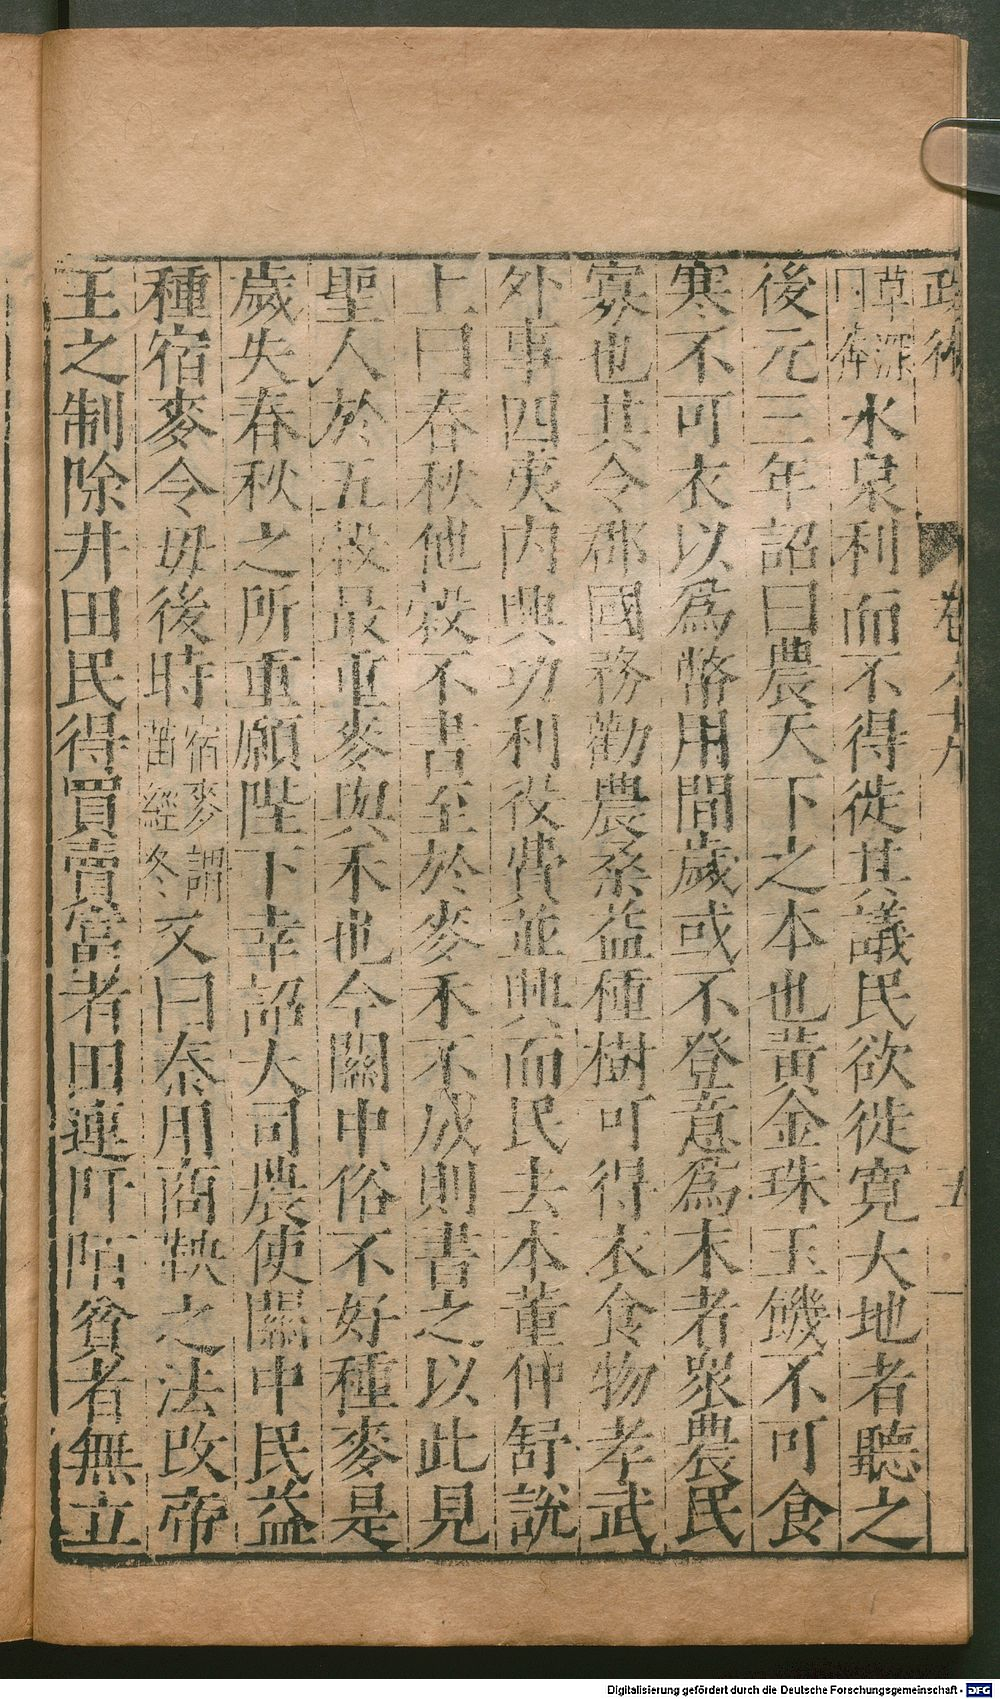 草深
曰莽水泉利而不得徙其議民欲徙寬大地者聽之
後元三年詔曰農天下之本也黃金珠玉饑不可食
寒不可衣以爲幣用間歲或不登意爲末者衆農民
寡也其令郡國務勸農桑益種樹可得衣食物孝武
外事四夷內興功利役費並興而民去本董仲舒說
上曰春秋他穀不書至於麥禾不成則書之以此見
聖人於五穀最重麥與禾也今關中俗不好種麥是
歲失春秋之所重願陛下幸詔大司農使關中民益
種宿麥令毋後時宿麥謂
苗經冬又曰秦用商鞅之法改帝
王之制除井田民得買賣富者田連阡陌貧者無立
Digitalisierung gefördert durch die Deutsche Forschungsgemeinschaft - DFG